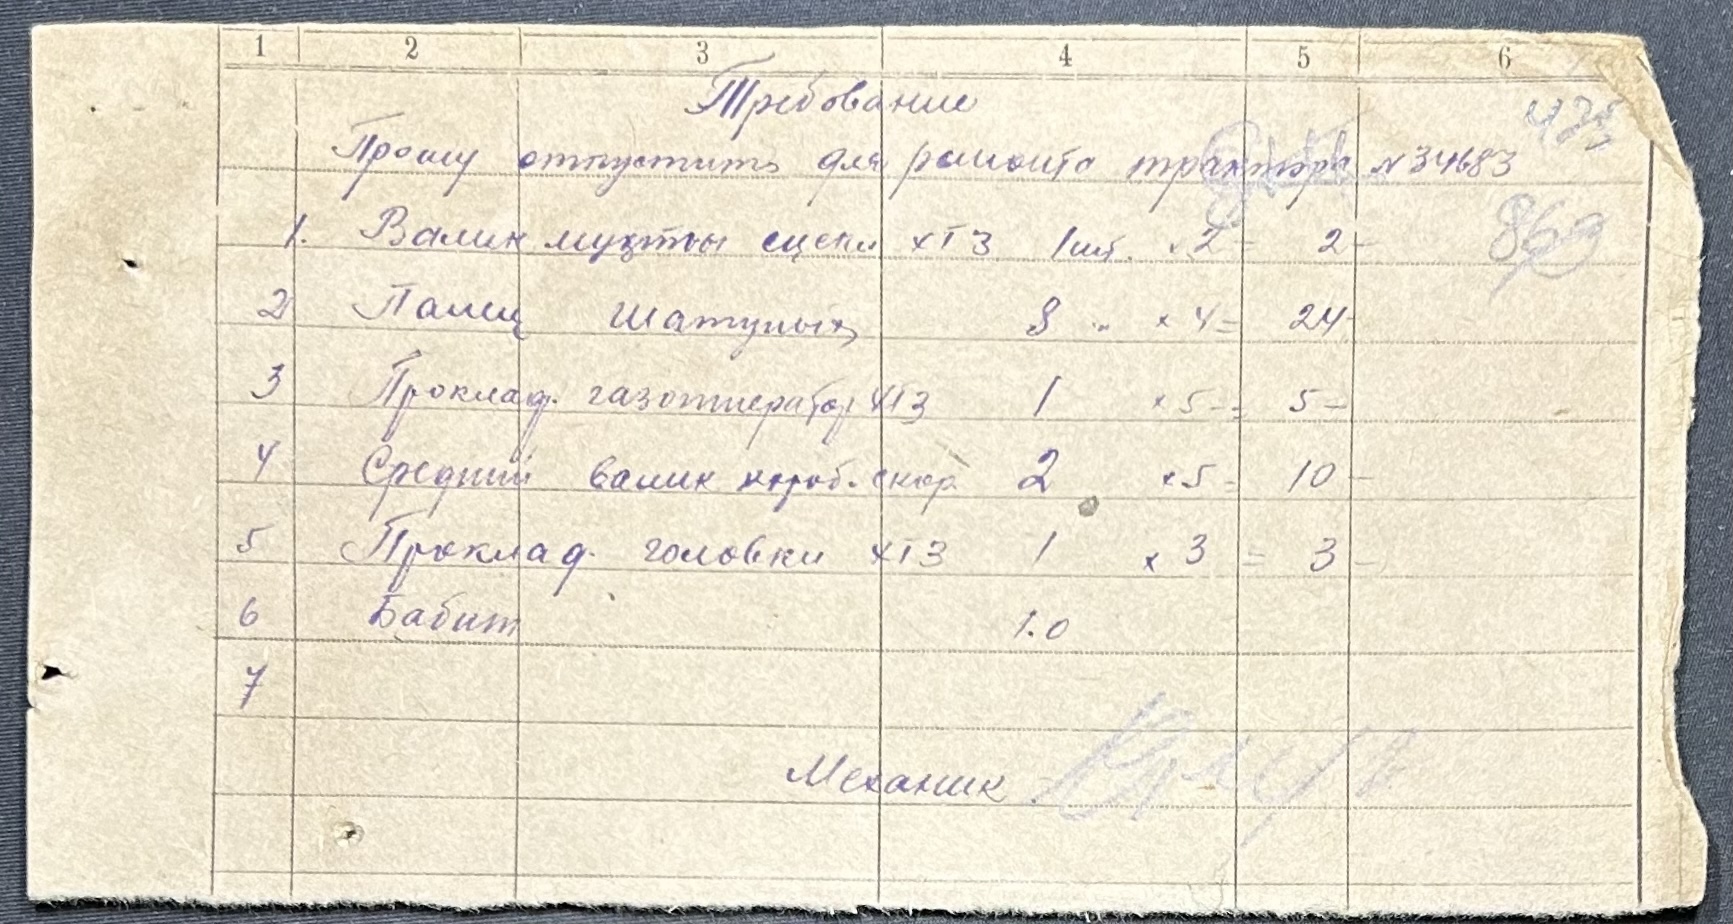 1 2 3 4 5 6
Требование
Прошу отпустить для ремонта трактора N 34683
1. Валик муфты сцепл ХТЗ 1 шт. × 2 = 2 -
2 Палец шатуных 8 " × 4 = 24 -
3 Проклад. ХТЗ 1 × 5 - = 5 -
4 Средний валик короб. скор 2 × 5 = 10 -
5 Проклад. головки ХТЗ 1 × 3 = 3 -
6 Бабит 1.0
7
Механик